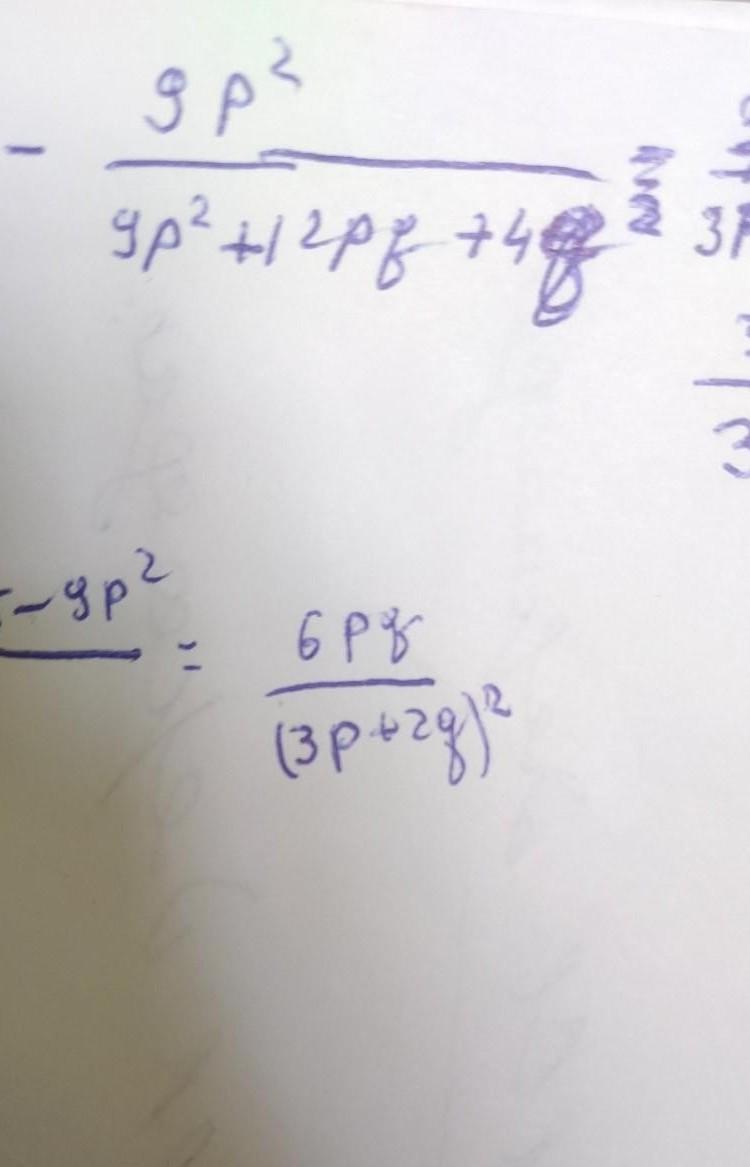 - 9p² / 9p² + 12pq + 4q² =
- 9p² / = 6pq / (3p + 2q)²